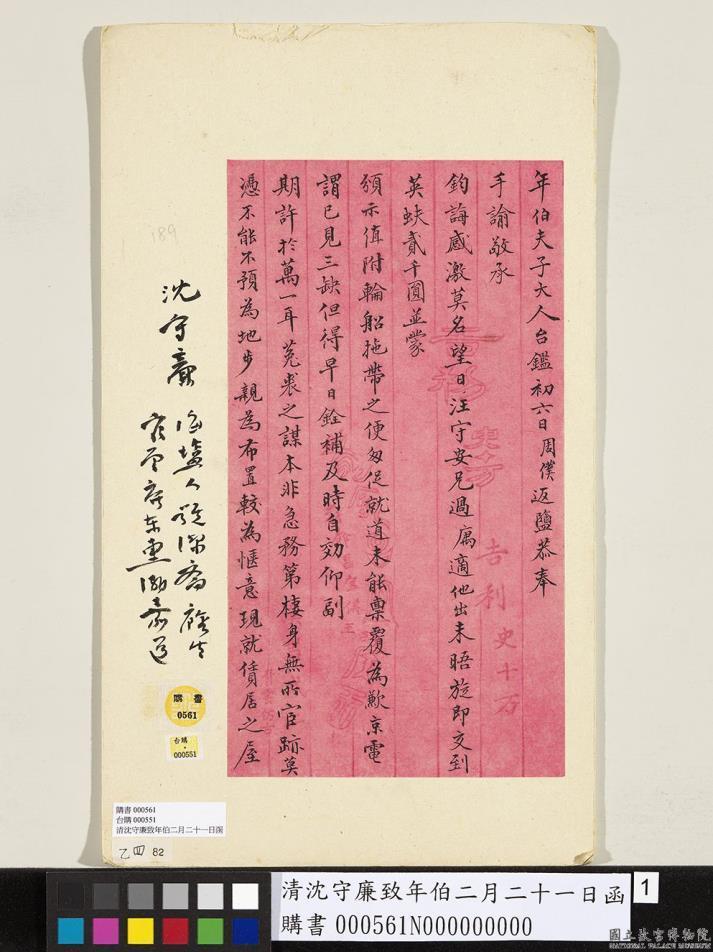 年伯夫子大人台鑑初六日周僕返鹽恭奉
手諭敬承
鈞誨感激莫名望日汪守安兄過厲適他出未晤旋即交到
英蚨貳千圓並蒙
頒示值附輪船拖帶之便匆促就道未能稟覆為歉京電
謂已見三缺但得早日銓補及時自効仰副
期許於萬一耳菟裘之謀本非急務第棲身無所官跡莫
憑不能不預為地步親為布置較為愜意現就賃居之屋
吉利
史十万
沈守廉
海鹽人
189
購書
0561
台購
000551
購書 000561
台購 000551
清沈守廉致年伯二月二十一日函
乙四 82
清沈守廉致年伯二月二十一日函
購書 000561N000000000
1
國立故宮博物院
NATIONAL PALACE MUSEUM